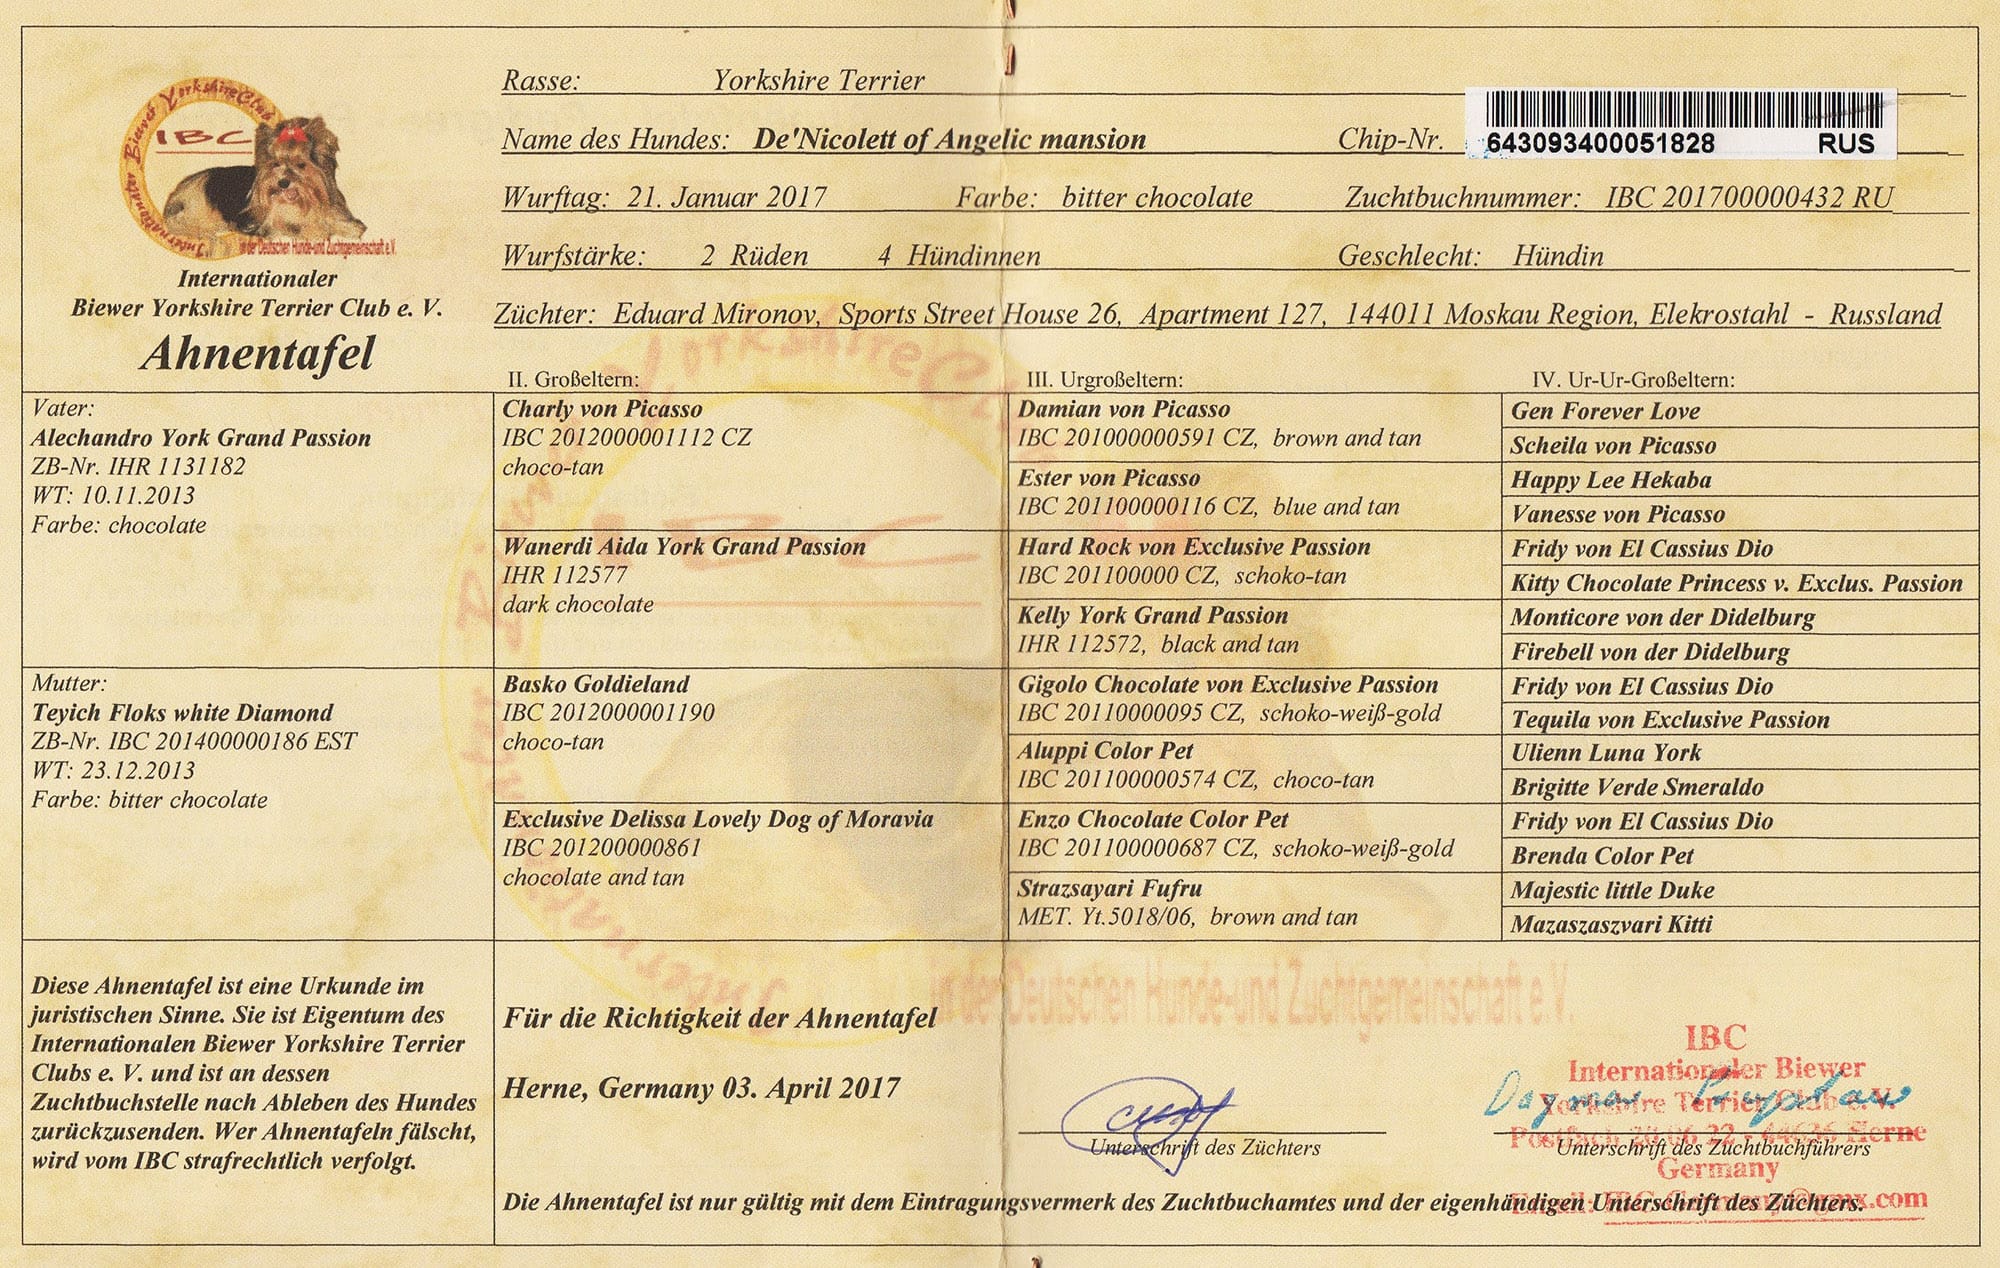 Internationaler Biewer Yorkshire Club
IBC
in der Deutschen Hunde-und Zuchtgemeinschaft e.V.
Internationaler
Biewer Yorkshire Terrier Club e. V.
Ahnentafel
Rasse: Yorkshire Terrier
Name des Hundes: De'Nicolett of Angelic mansion Chip-Nr. 643093400051828 RUS
Wurftag: 21. Januar 2017 Farbe: bitter chocolate Zuchtbuchnummer: IBC 201700000432 RU
Wurfstärke: 2 Rüden 4 Hündinnen Geschlecht: Hündin
Züchter: Eduard Mironov, Sports Street House 26, Apartment 127, 144011 Moskau Region, Elekrostahl - Russland
Vater:
Alechandro York Grand Passion
ZB-Nr. IHR 1131182
WT: 10.11.2013
Farbe: chocolate
Mutter:
Teyich Floks white Diamond
ZB-Nr. IBC 201400000186 EST
WT: 23.12.2013
Farbe: bitter chocolate
II. Großeltern:
Charly von Picasso
IBC 2012000001112 CZ
choco-tan
Wanerdi Aida York Grand Passion
IHR 112577
dark chocolate
Basko Goldieland
IBC 2012000001190
choco-tan
Exclusive Delissa Lovely Dog of Moravia
IBC 201200000861
chocolate and tan
III. Urgroßeltern:
Damian von Picasso
IBC 201000000591 CZ, brown and tan
Ester von Picasso
IBC 201100000116 CZ, blue and tan
Hard Rock von Exclusive Passion
IBC 201100000 CZ, schoko-tan
Kelly York Grand Passion
IHR 112572, black and tan
Gigolo Chocolate von Exclusive Passion
IBC 20110000095 CZ, schoko-weiß-gold
Aluppi Color Pet
IBC 201100000574 CZ, choco-tan
Enzo Chocolate Color Pet
IBC 201100000687 CZ, schoko-weiß-gold
Strazsayari Fufru
MET. Yt.5018/06, brown and tan
IV. Ur-Ur-Großeltern:
Gen Forever Love
Scheila von Picasso
Happy Lee Hekaba
Vanesse von Picasso
Fridy von El Cassius Dio
Kitty Chocolate Princess v. Exclus. Passion
Monticore von der Didelburg
Firebell von der Didelburg
Fridy von El Cassius Dio
Tequila von Exclusive Passion
Ulienn Luna York
Brigitte Verde Smeraldo
Fridy von El Cassius Dio
Brenda Color Pet
Majestic little Duke
Mazaszaszvari Kitti
Diese Ahnentafel ist eine Urkunde im
juristischen Sinne. Sie ist Eigentum des
Internationalen Biewer Yorkshire Terrier
Clubs e. V. und ist an dessen
Zuchtbuchstelle nach Ableben des Hundes
zurückzusenden. Wer Ahnentafeln fälscht,
wird vom IBC strafrechtlich verfolgt.
in der Deutschen Hunde-und Zuchtgemeinschaft e.V.
Für die Richtigkeit der Ahnentafel
Herne, Germany 03. April 2017
Unterschrift des Züchters
IBC
Internationaler Biewer
Yorkshire Terrier Club e.V.
Postfach 20 06 22 - 44636 Herne
Germany
Email: IBC-Germany@gmx.com
Dagmar
Unterschrift des Zuchtbuchführers
Die Ahnentafel ist nur gültig mit dem Eintragungsvermerk des Zuchtbuchamtes und der eigenhändigen Unterschrift des Züchters.